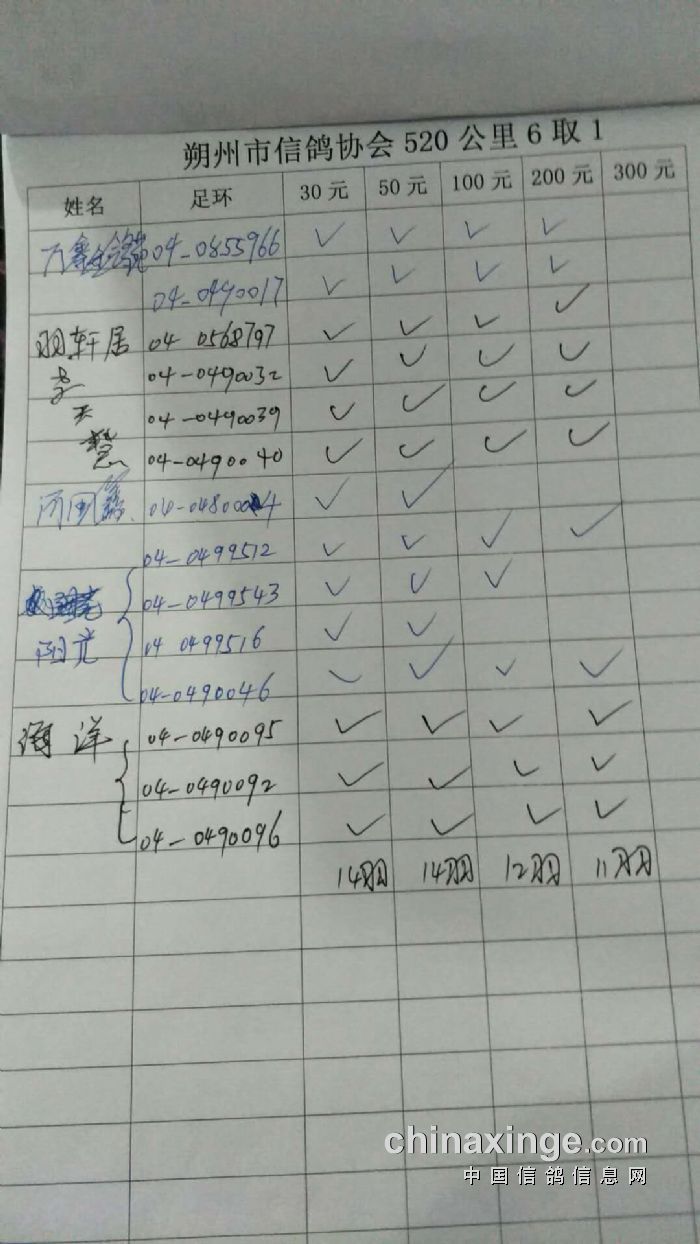 朔州市信鸽协会 520 公里 6 取 1
姓名 足环 30 元 50 元 100 元 200 元 300 元
04-0855966 ✓ ✓ ✓ ✓
04-0490017 ✓ ✓ ✓ ✓
羽轩居 04 0568797 ✓ ✓ ✓ ✓
李 04-0490032 ✓ ✓ ✓ ✓
天 04-0490039 ✓ ✓ ✓ ✓
慧 04-0490040 ✓ ✓ ✓ ✓
04-0480004 ✓ ✓
04-0499512 ✓ ✓ ✓ ✓
04-0499543 ✓ ✓ ✓
阳光 04 0499516 ✓ ✓
04-0490046 ✓ ✓ ✓ ✓
海洋 04-0490095 ✓ ✓ ✓ ✓
04-0490092 ✓ ✓ ✓ ✓
04-0490096 ✓ ✓ ✓ ✓
14羽 14羽 12羽 11羽
chinaxinge.com
中国信鸽信息网